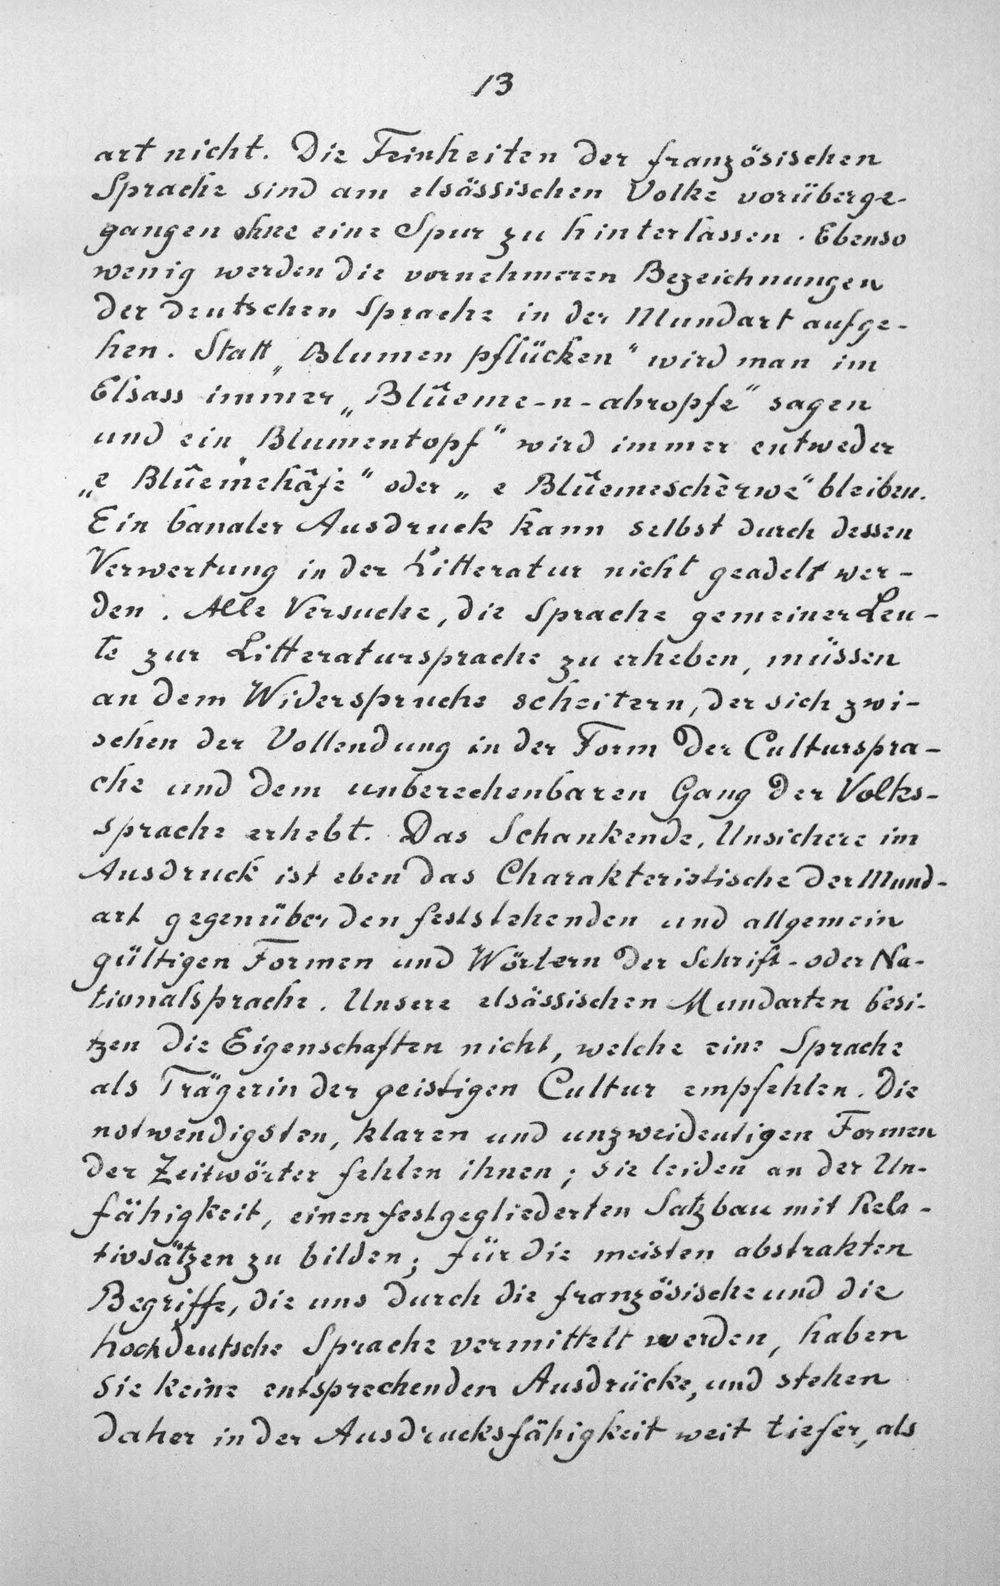 13
art nicht. Die Feinheiten der französischen
Sprache sind am elsässischen Volke vorüberge-
gangen ohne eine Spur zu hinterlassen. Ebenso
wenig werden die vornehmeren Bezeichnungen
der deutschen Sprache in der Mundart aufge-
hen. Statt „Blumen pflücken" wird man im
Elsass immer „Blûeme-n-abropfe" sagen
und ein „Blumentopf" wird immer entweder
„e Blûemehâfe" oder „e Blûemeschèrwe" bleiben.
Ein banaler Ausdruck kann selbst durch dessen
Verwertung in der Litteratur nicht geadelt wer-
den. Alle Versuche, die Sprache gemeiner Leu-
te zur Litteratursprache zu erheben, müssen
an dem Widerspruche scheitern, der sich zwi-
schen der Vollendung in der Form der Culturspra-
che und dem unberechenbaren Gang der Volks-
sprache erhebt. Das Schankende, Unsichere im
Ausdruck ist eben das Charakteristische der Mund-
art gegenüber den feststehenden und allgemein
gültigen Formen und Wörtern der Schrift- oder Na-
tionalsprache. Unsere elsässischen Mundarten besi-
tzen die Eigenschaften nicht, welche eine Sprache
als Trägerin der geistigen Cultur empfehlen. Die
notwendigsten, klaren und unzweideutigen Formen
der Zeitwörter fehlen ihnen; sie leiden an der Un-
fähigkeit, einen festgegliederten Satzbau mit Rela-
tivsätzen zu bilden; für die meisten abstrakten
Begriffe, die uns durch die französische und die
hochdeutsche Sprache vermittelt werden, haben
sie keine entsprechenden Ausdrücke, und stehen
daher in der Ausdrucksfähigkeit weit tiefer, als